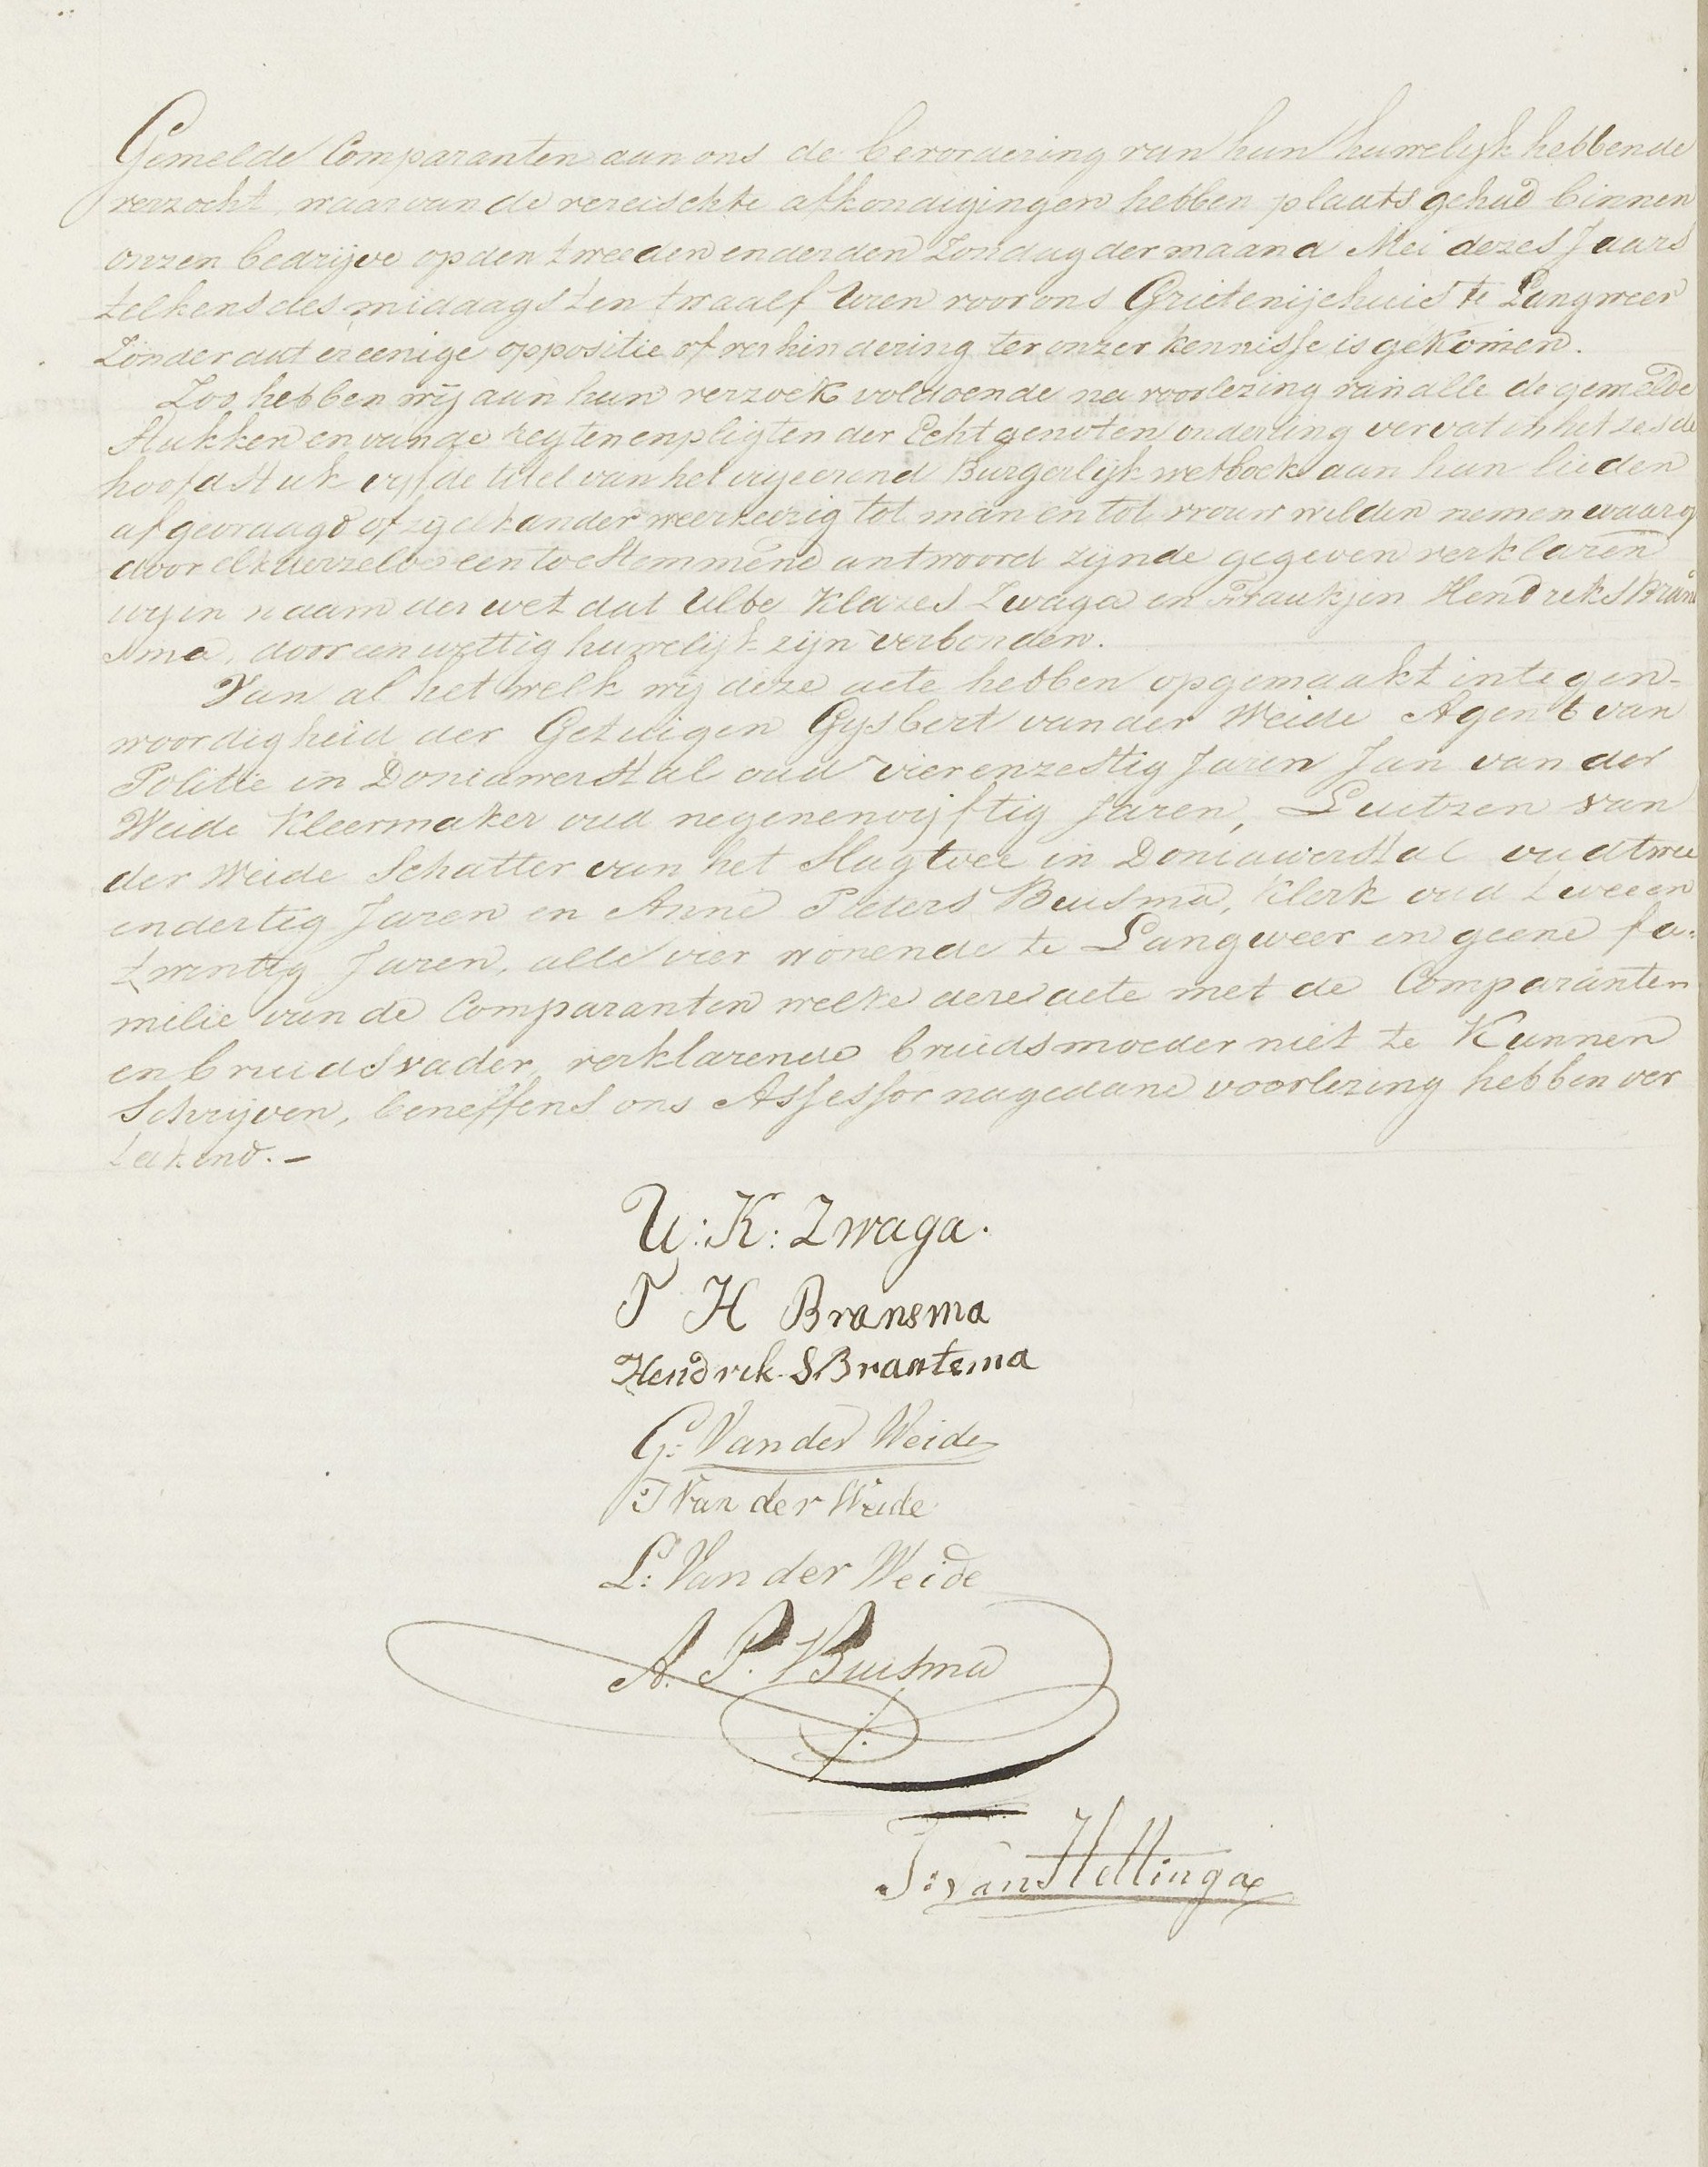 Gemelde Comparanten aan ons de bevordering van hun huwelijk hebbende
verzocht, waarvan de vereischte afkondigingen hebben plaats gehad binnen
onzen bedrijve op den tweeden en derden Zondag der maand Mei dezes Jaars
telkens des middags ten twaalf Uren voor ons Grietenijehuis te Langweer
Zonder dat er eenige oppositie of verhindering ter onzer kennisse is gekomen.
Zoo hebben wij aan hun verzoek voldoende na voorlezing van alle de gemelde
Stukken en van de regten en pligten der Echtgenoten onderling vervat in het zesde
hoofdstuk vyfde titel van het vigeerend Burgerlijk wetboek aan hun lieden
afgevraagd of zij elkander weerkeerig tot man en tot vrouw wilden nemen waarop
door elk derzelve een toestemmend antwoord zijnde gegeven verklaren
wy in naam der wet dat Ulbe Klazes Zwaga en Fraukjen Hendriks Brant
sma, door een wettig huwelijk zijn verbonden.
Van al het welk wij deze acte hebben opgemaakt in tegen-
woordigheid der Getuigen Gysbert van der Weide Agent van
Politie in Doniawerstal oud vierenzestig Jaren Jan van der
Weide Kleermaker oud negenenvijftig Jaren, Luitzen van
der Weide Schatter van het Slagtvee in Doniawerstal oud twee
endertig Jaren en Anne Pieters Buisma, Klerk oud tweeen
twintig Jaren, alle vier wonende te Langweer en geene fa-
milie van de Comparanten welke deze acte met de Comparanten
en bruidsvader, verklarende bruidsmoeder niet te Kunnen
Schrijven, beneffens ons Assessor na gedane voorlezing hebben ver
tekend.-
U: K: Zwaga.
F H Bransma
Hendrik S Brantsma
G: Van der Weide
J Van der Weide
L: Van der Weide
A. P. Buisma
J: van Hettinga